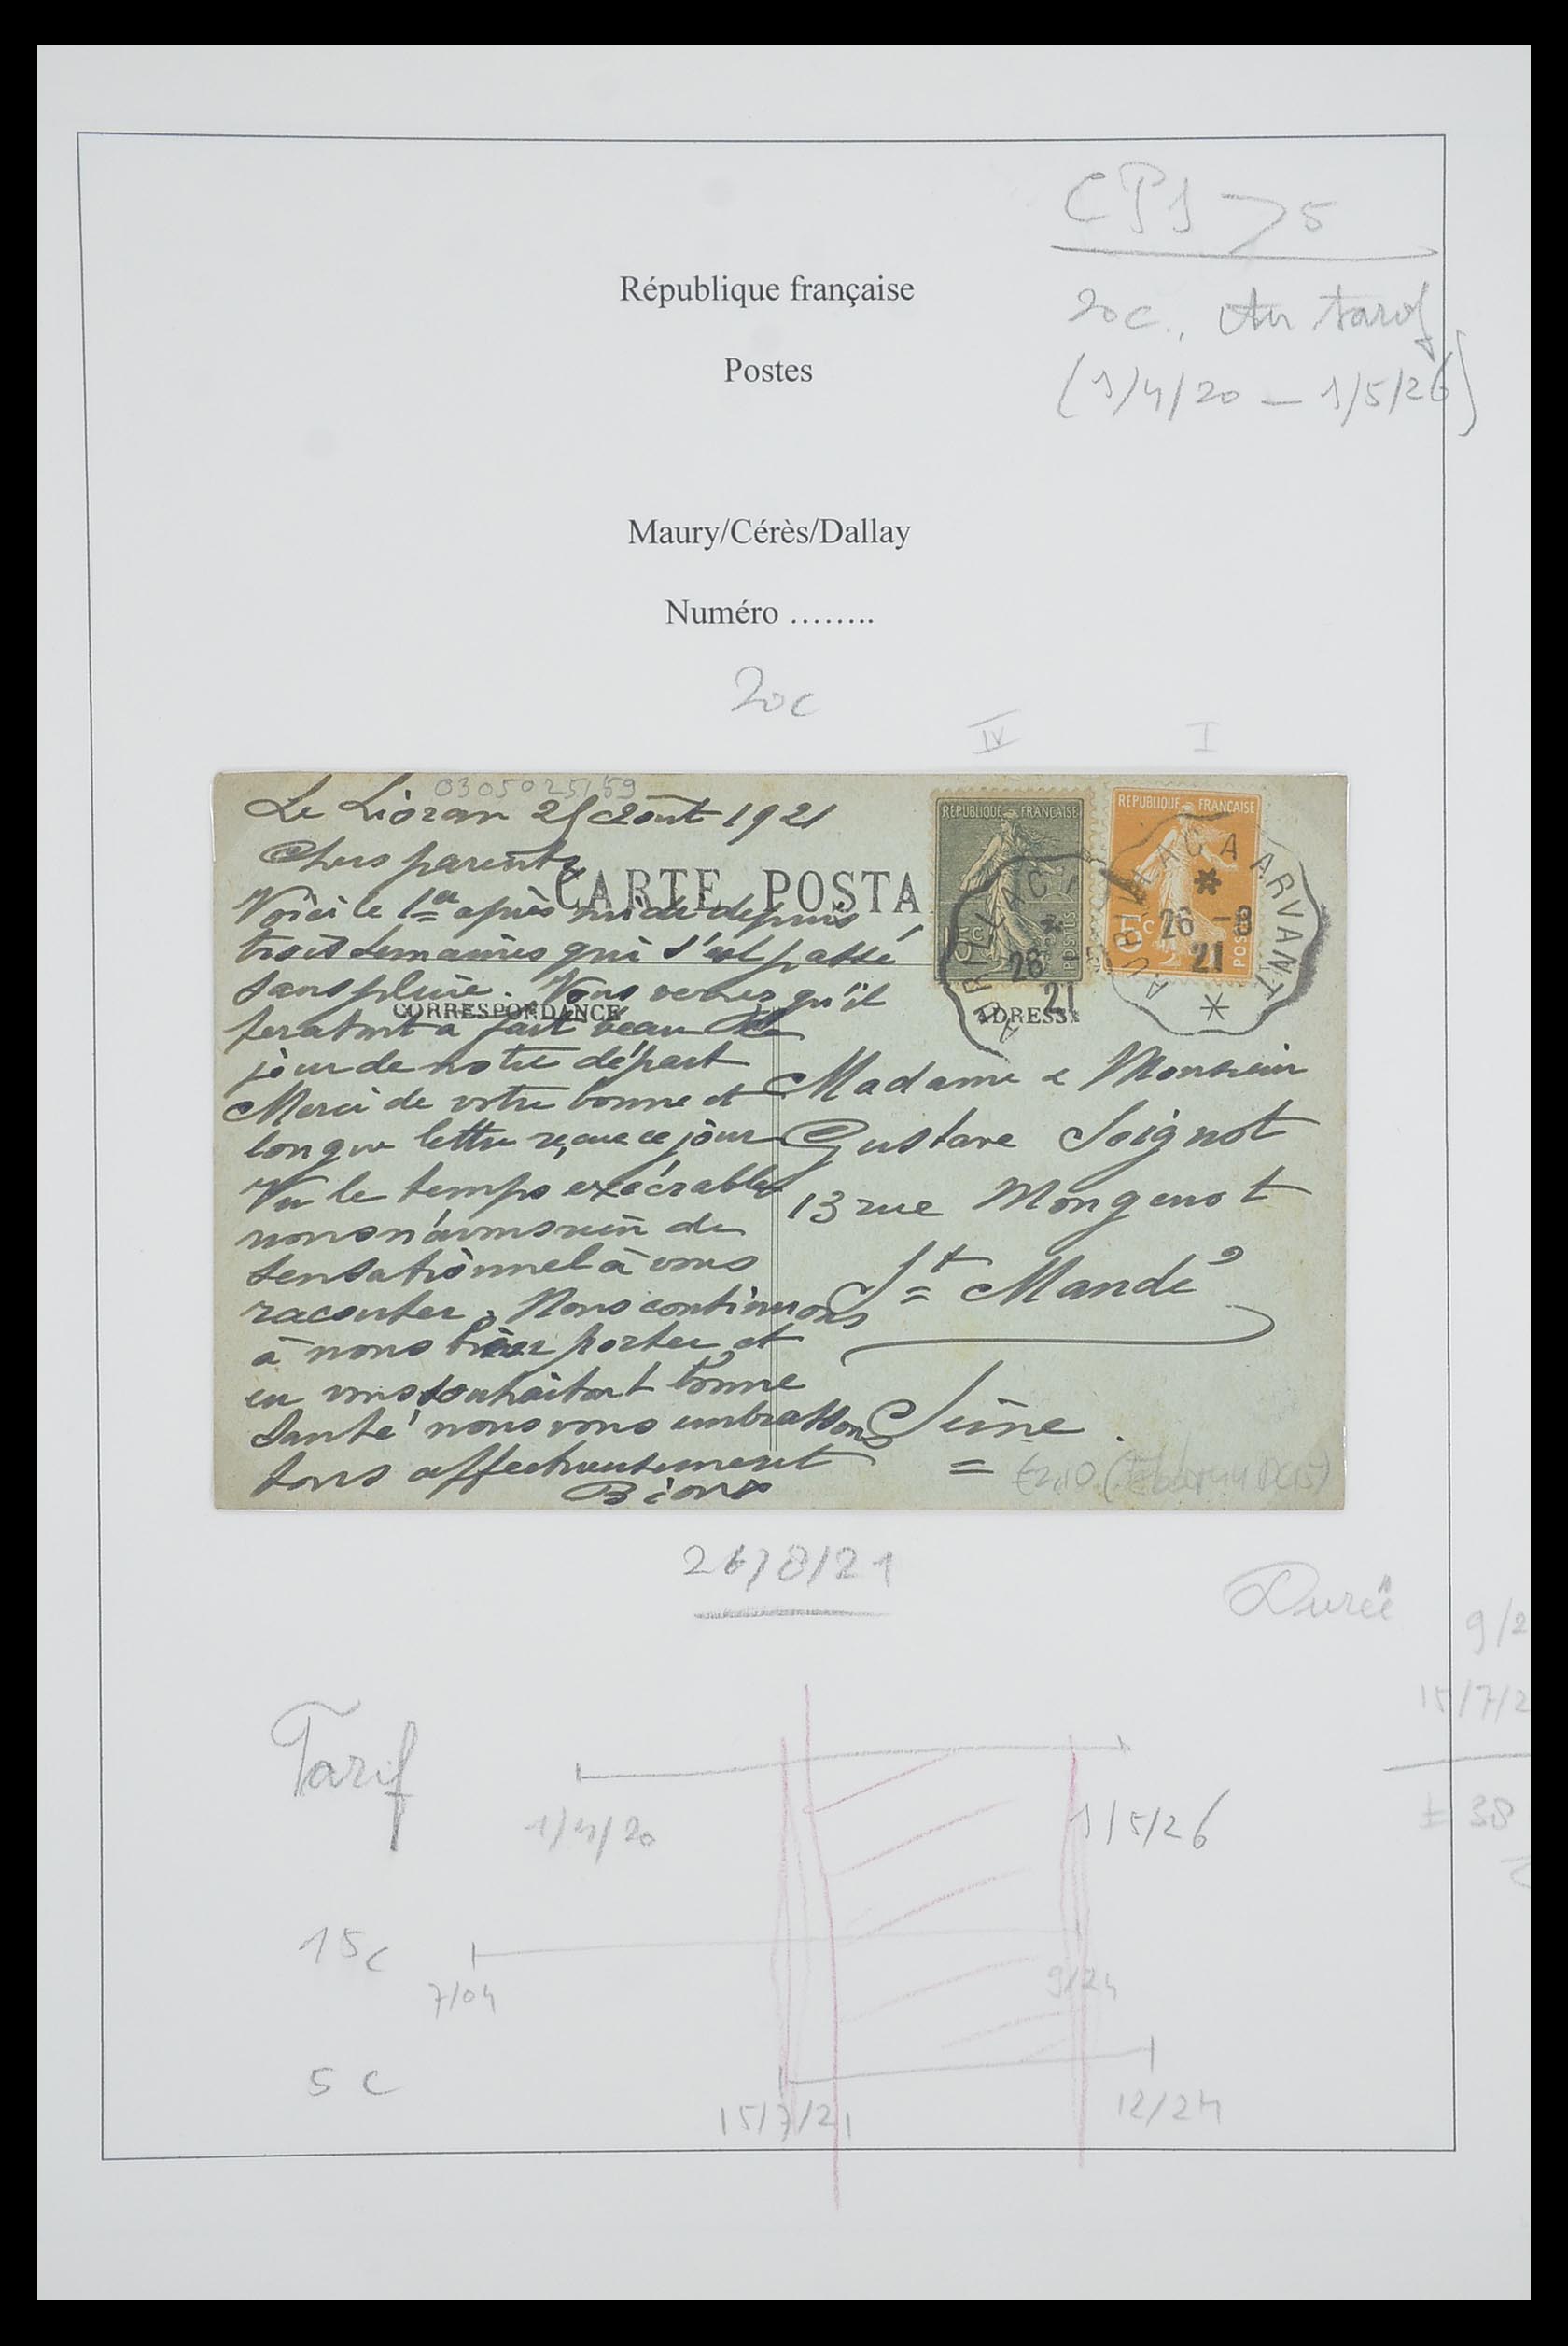 CP1 > 5
20c. Au tarif
(1/4/20 — 1/5/26)
République française
Postes
Maury/Cérès/Dallay
Numéro ........
20c
IV I
0305025159
Le Lioran 25 Août 1921
Chers parents
CARTE POSTA
Voici le 1er après midi depuis
trois semaines qui s'est passé
sans pluie. Vous verrez qu'il
CORRESPONDANCE
fera tout a fait beau le
jour de notre départ
Merci de votre bonne et
longue lettre reçue ce jour
Vu le temps exécrable
nous n'avons rien de
sensationnel à vous
raconter. Nous continuons
à nous bien porter et
en vous souhaitant bonne
santé nous vous embrassons
tous affectueusement
REPUBLIQUE FRANÇAISE
15c
POSTES
REPUBLIQUE FRANÇAISE
5c
POSTES
AURILLAC A
26
21
AURILLAC A ARVANT
26 - 8
21
ADRESSE
Madame & Monsieur
Gustave Soignot
13 rue Mongenot
St Mandé
Seine.
26/8/21
Durée
9/2
15/7/2
± 38
Tarif
1/4/20 1/5/26
15c
7/04 9/24
5c
15/7/21 12/24